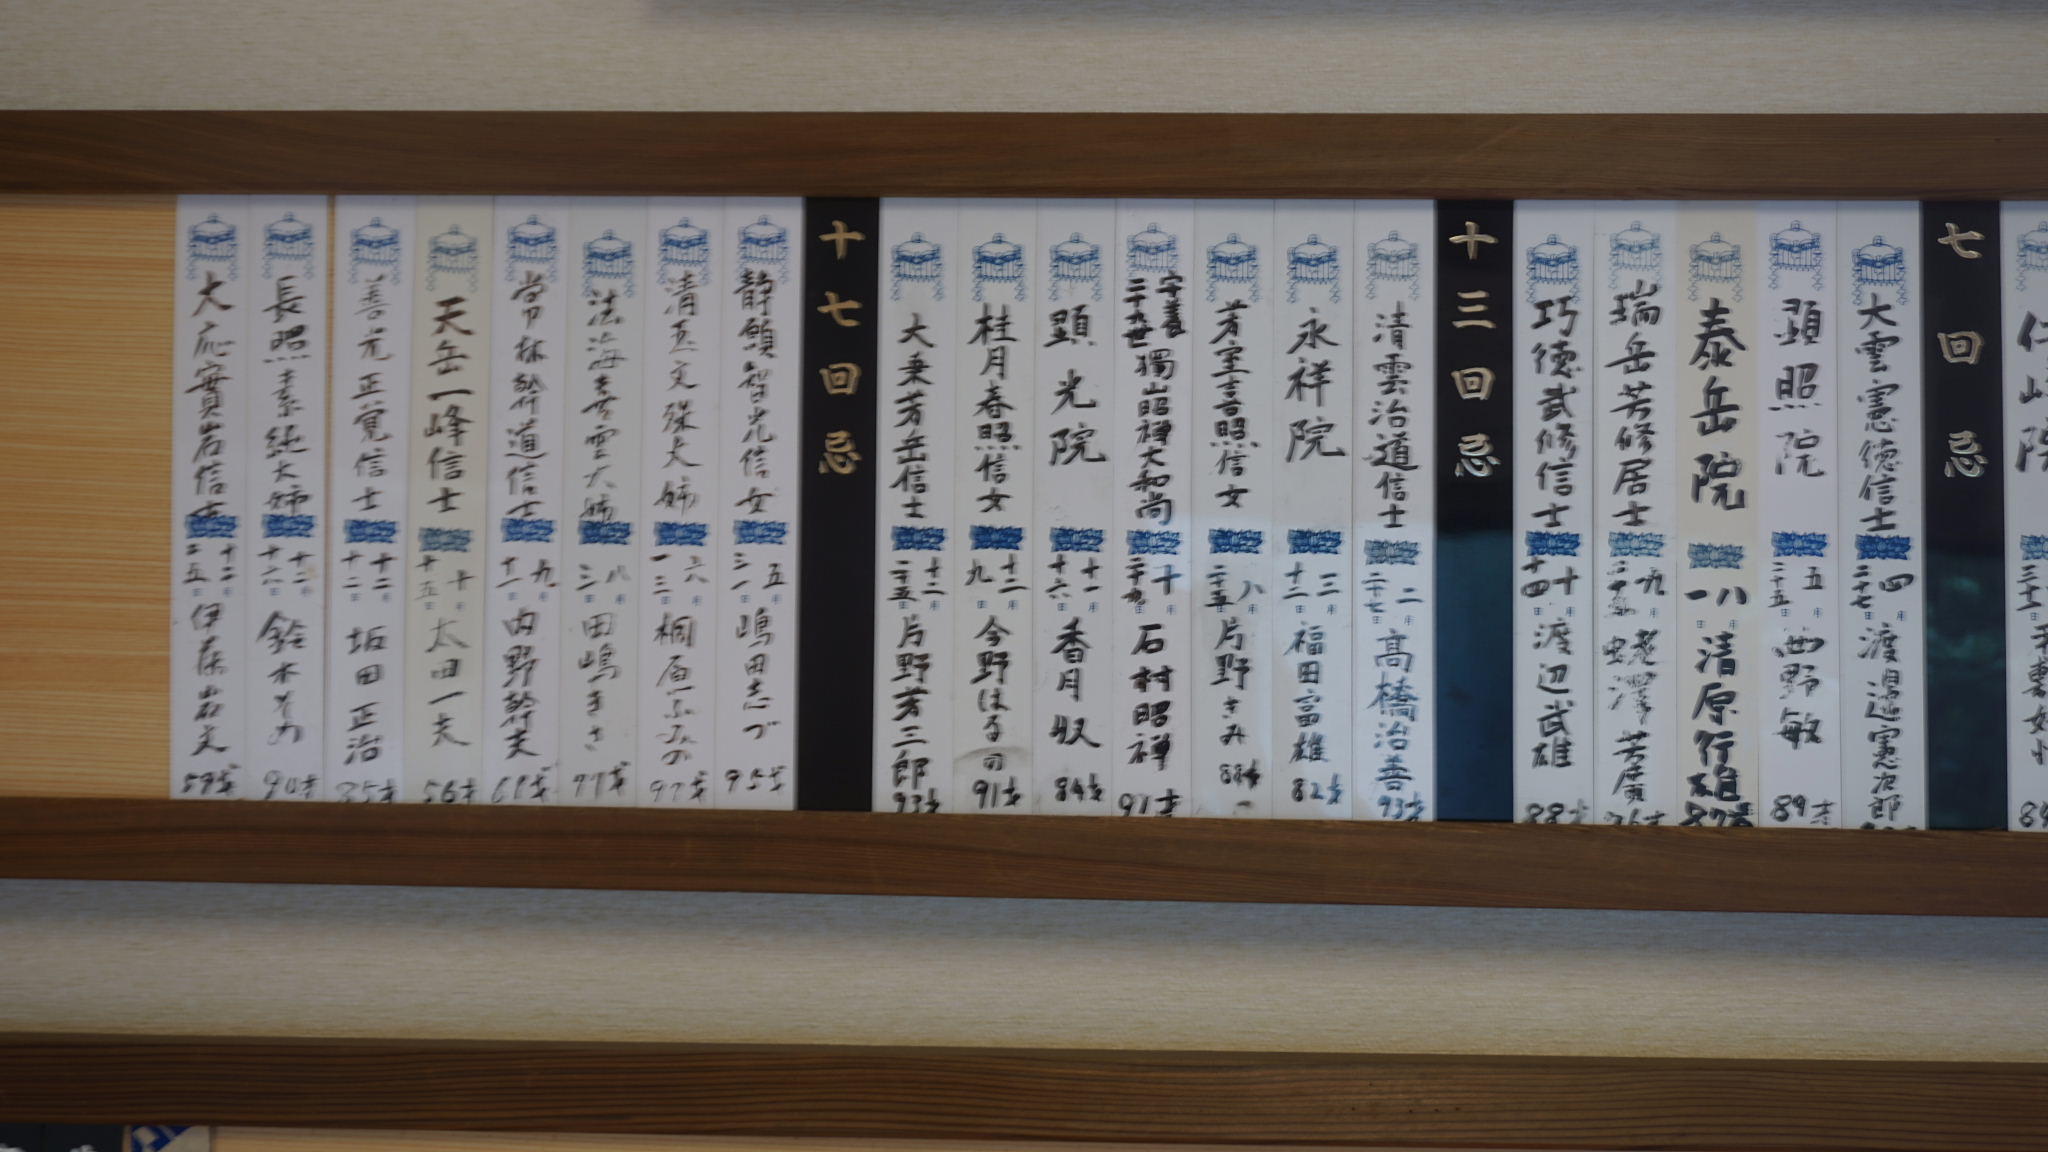 七回忌
大雲憲徳信士 四月二十七日 渡邉憲次郎
顕照院 五月二十五日 西野敏 89才
泰岳院 八月一日 清原行雄 87才
瑞岳芳修居士 九月 芳廣
巧徳武修信士 十月十四日 渡辺武雄 88才
十三回忌
清雲治道信士 二月二十七日 高橋治善 93才
永祥院 三月十二日 福田富雄 82才
芳室喜照信女 八月二十五日 片野きみ 88才
二十九世 獨山昭禅大和尚 十月二十九日 石村昭禅 91才
顕光院 十一月十六日 香月収 84才
桂月春照信女 十二月九日 今野はるの 91才
大乗芳岳信士 十二月二十五日 片野芳三郎 93才
十七回忌
静願智光信女 五月三一日 嶋田志づ 95才
清玉文殊大姉 六月一三日 桐原ふみの 97才
法海喜雲大姉 八月三一日 田嶋きさ 77才
常林幹道信士 九月十一日 内野幹夫
天岳一峰信士 十月十五日 太田一夫 56才
善光正覚信士 十二月十二日 坂田正治
長照素純大姉 十二月十六日 鈴木その 90才
大応實岩信士 十二月二五日 伊藤岩夫 59才